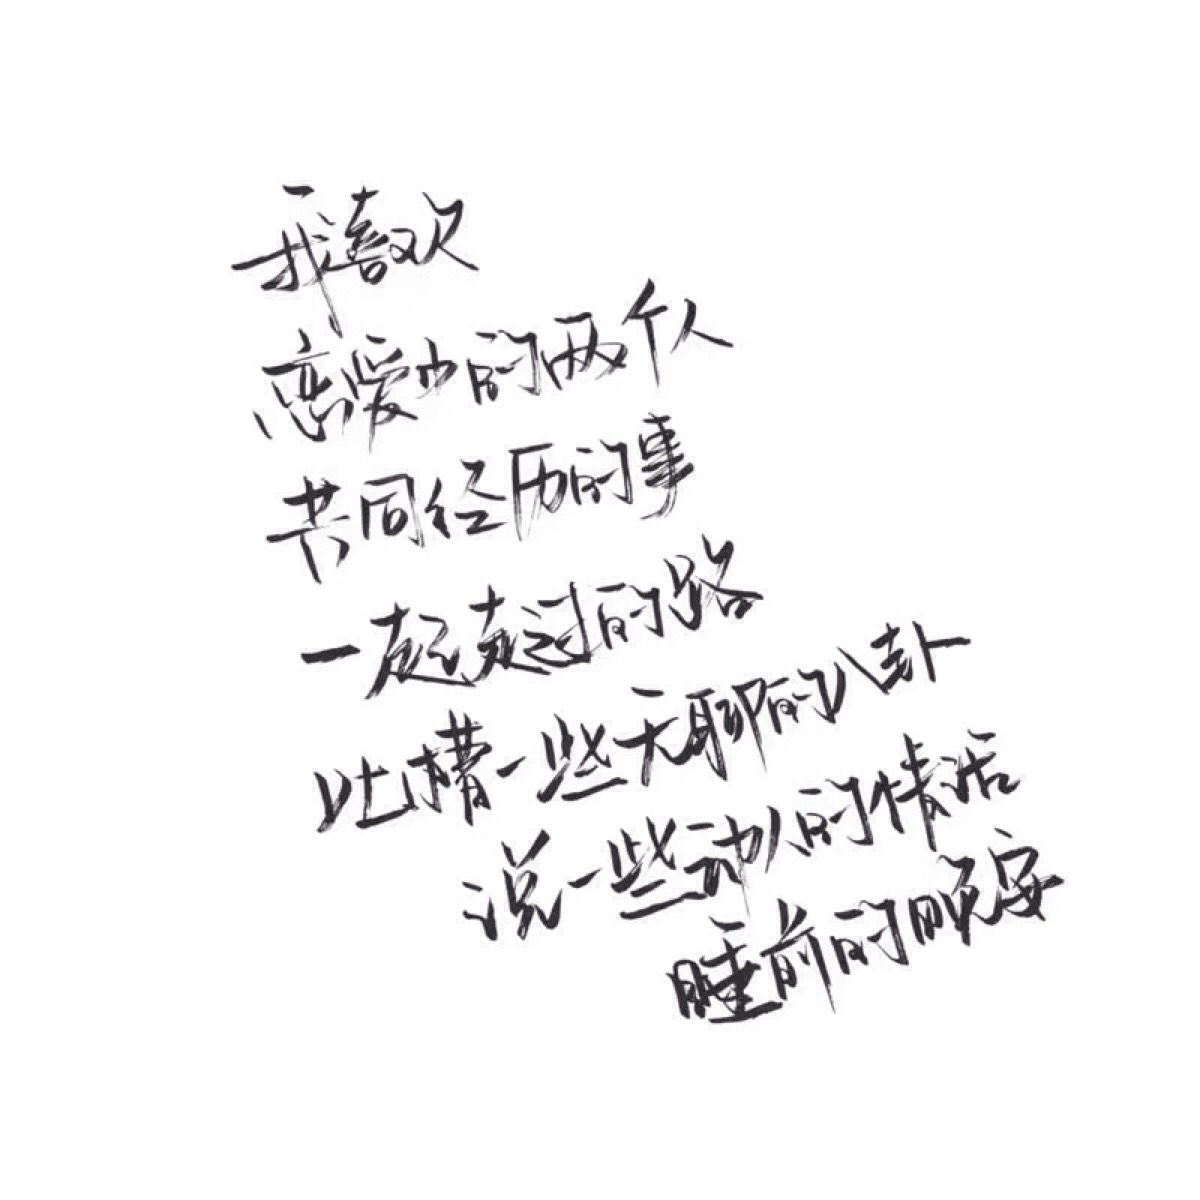 我喜欢
恋爱中的两个人
共同经历的事
一起走过的路
吐槽一些无聊的八卦
说一些动人的情话
睡前的晚安